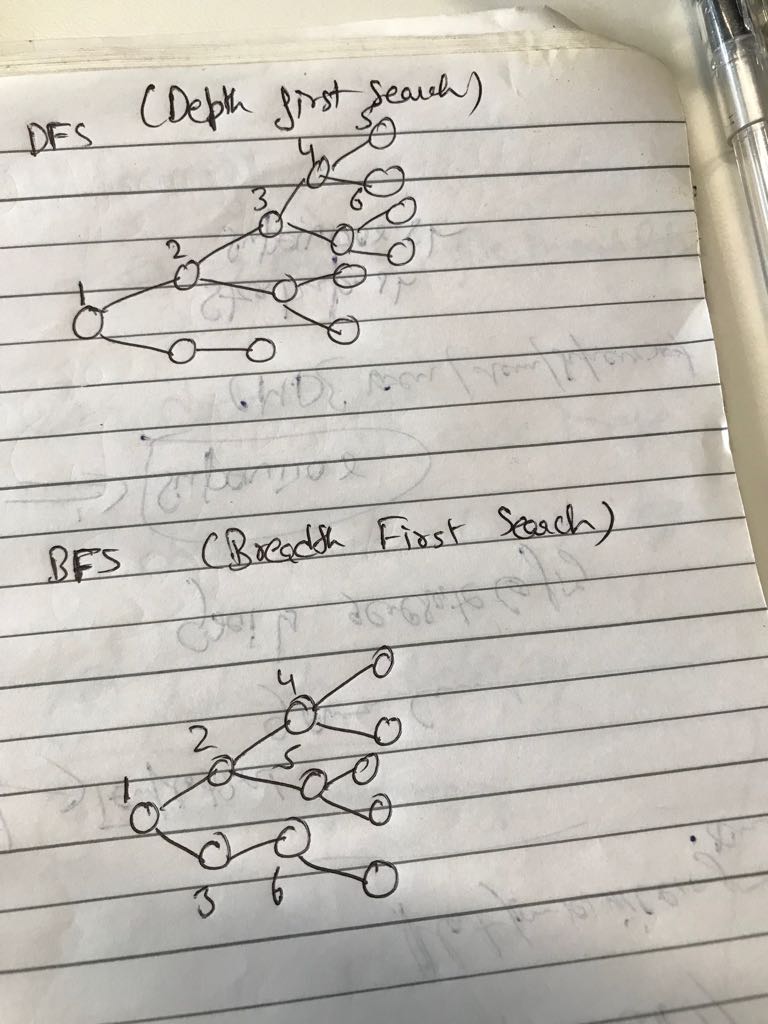 DFS (Depth first Search)
5
4
6
3
2
1
BFS (Breadth First Search)
4
2
5
1
3 6